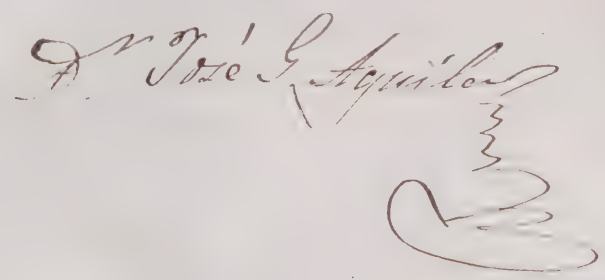 Dr. José G. Aguilera